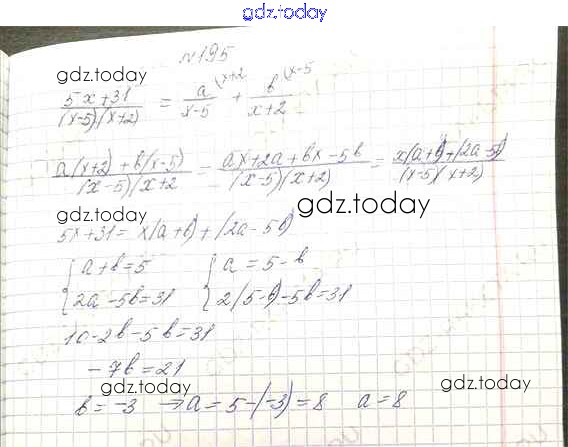 gdz.today
№195
gdz.today
(5x+31)/((x-5)(x+2)) = a/(x-5) (x+2 + b/(x+2) (x-5
(a(x+2)+b(x-5))/((x-5)(x+2) = (ax+2a+bx-5b)/((x-5)(x+2)) = (x(a+b)+(2a-5b))/((x-5)(x+2))
gdz.today
gdz.today
5x+31= x(a+b)+(2a-5b)
{ a+b=5 { a=5-b
2a-5b=31 2(5-b)-5b=31
10-2b-5b=31
-7b=21
gdz.today
gdz.today
b=-3 ⇒ a=5-(-3)=8 a=8